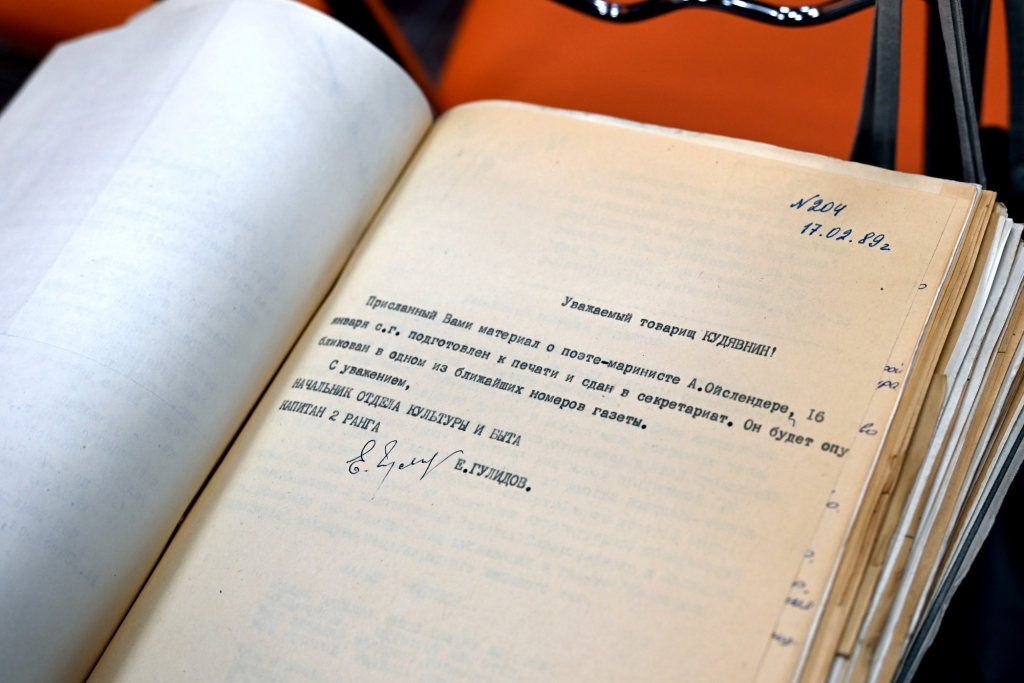 N204
17.02.89г
Уважаемый товарищ КУДЯВНИН!
Присланный Вами материал о поэте-маринисте А.Ойслендере, 16
января с.г. подготовлен к печати и сдан в секретариат. Он будет опу
бликован в одном из ближайших номеров газеты.
С уважением,
НАЧАЛЬНИК ОТДЕЛА КУЛЬТУРЫ И БЫТА
КАПИТАН 2 РАНГА
Е.ГУЛИДОВ.